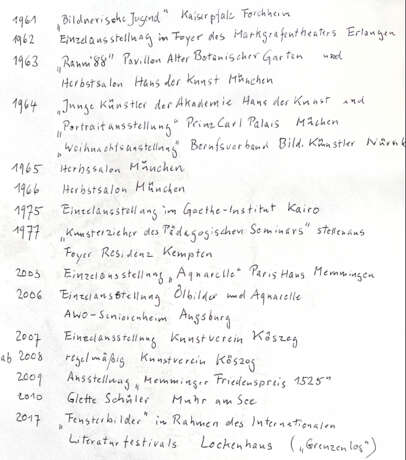 1961 „Bildnerische Jugend" Kaiserpfalz Forchheim
1962 Einzelausstellung im Foyer des Markgrafentheaters Erlangen
1963 „Raum '88" Pavillon Alter Botanischer Garten und
Herbstsalon Haus der Kunst München
1964 „Junge Künstler der Akademie Haus der Kunst und
„Portraitausstellung" Prinz Carl Palais Müchen
„Weihnachtsausstellung" Berufsverband Bild. Künstler Nürnb
1965 Herbssalon München
1966 Herbstsalon München
1975 Einzelausstellung im Goethe-Institut Kairo
1977 „Kunsterzieher des Pädagogischen Seminars" stellen aus
Foyer Residenz Kempten
2003 Einzelausstellung „Aquarelle" Paris Haus Memmingen
2006 Einzelausstellung Ölbilder und Aquarelle
AWO-Seniorenheim Augsburg
2007 Einzelausstellung Kunstverein Köszeg
ab 2008 regelmäßig Kunstverein Köszeg
2009 Ausstellung „Memminger Friedenspreis 1525"
2010 Glette Schüler Muhr am See
2017 „Fensterbilder" in Rahmen des Internationalen
Literaturfestivals Lockenhaus („Grenzenlos")